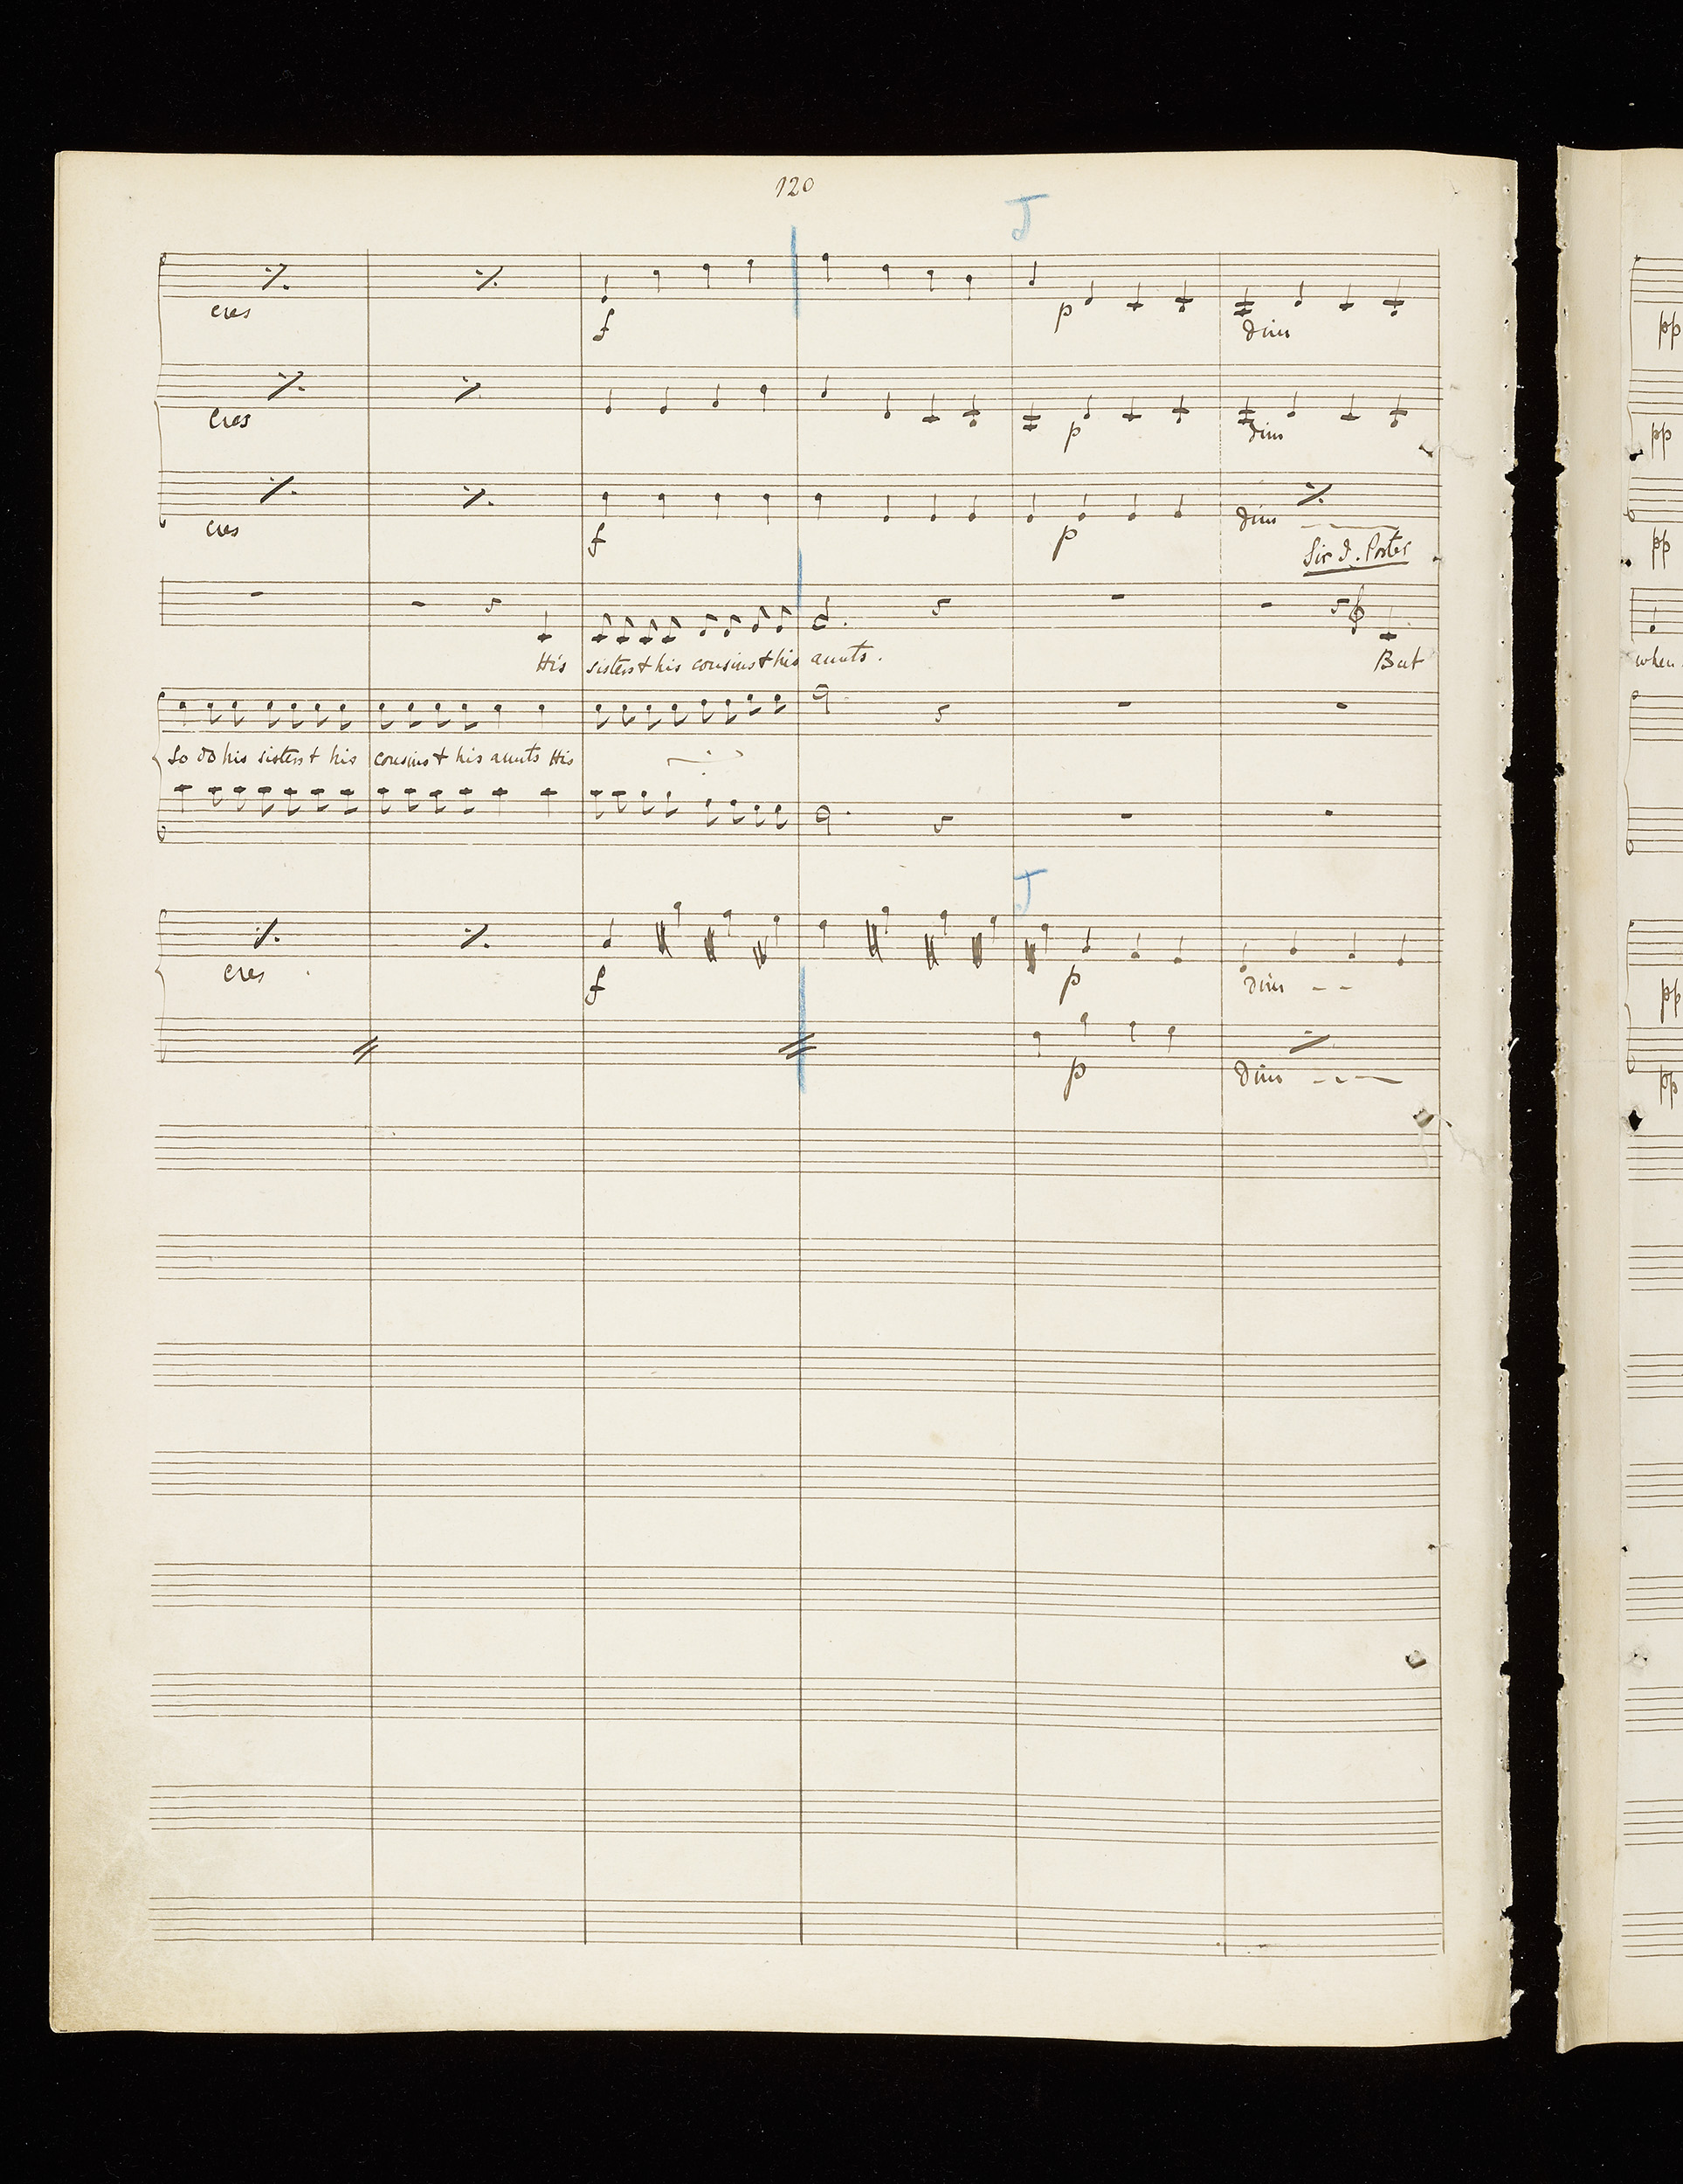 120
J
cres f p dim
cres p dim
cres f p dim
Sir J. Porter
His sisters & his cousins & his aunts. But
So do his sisters & his cousins & his aunts His
J
cres f p dim
p dim
pp
pp
pp
when
pp
pp